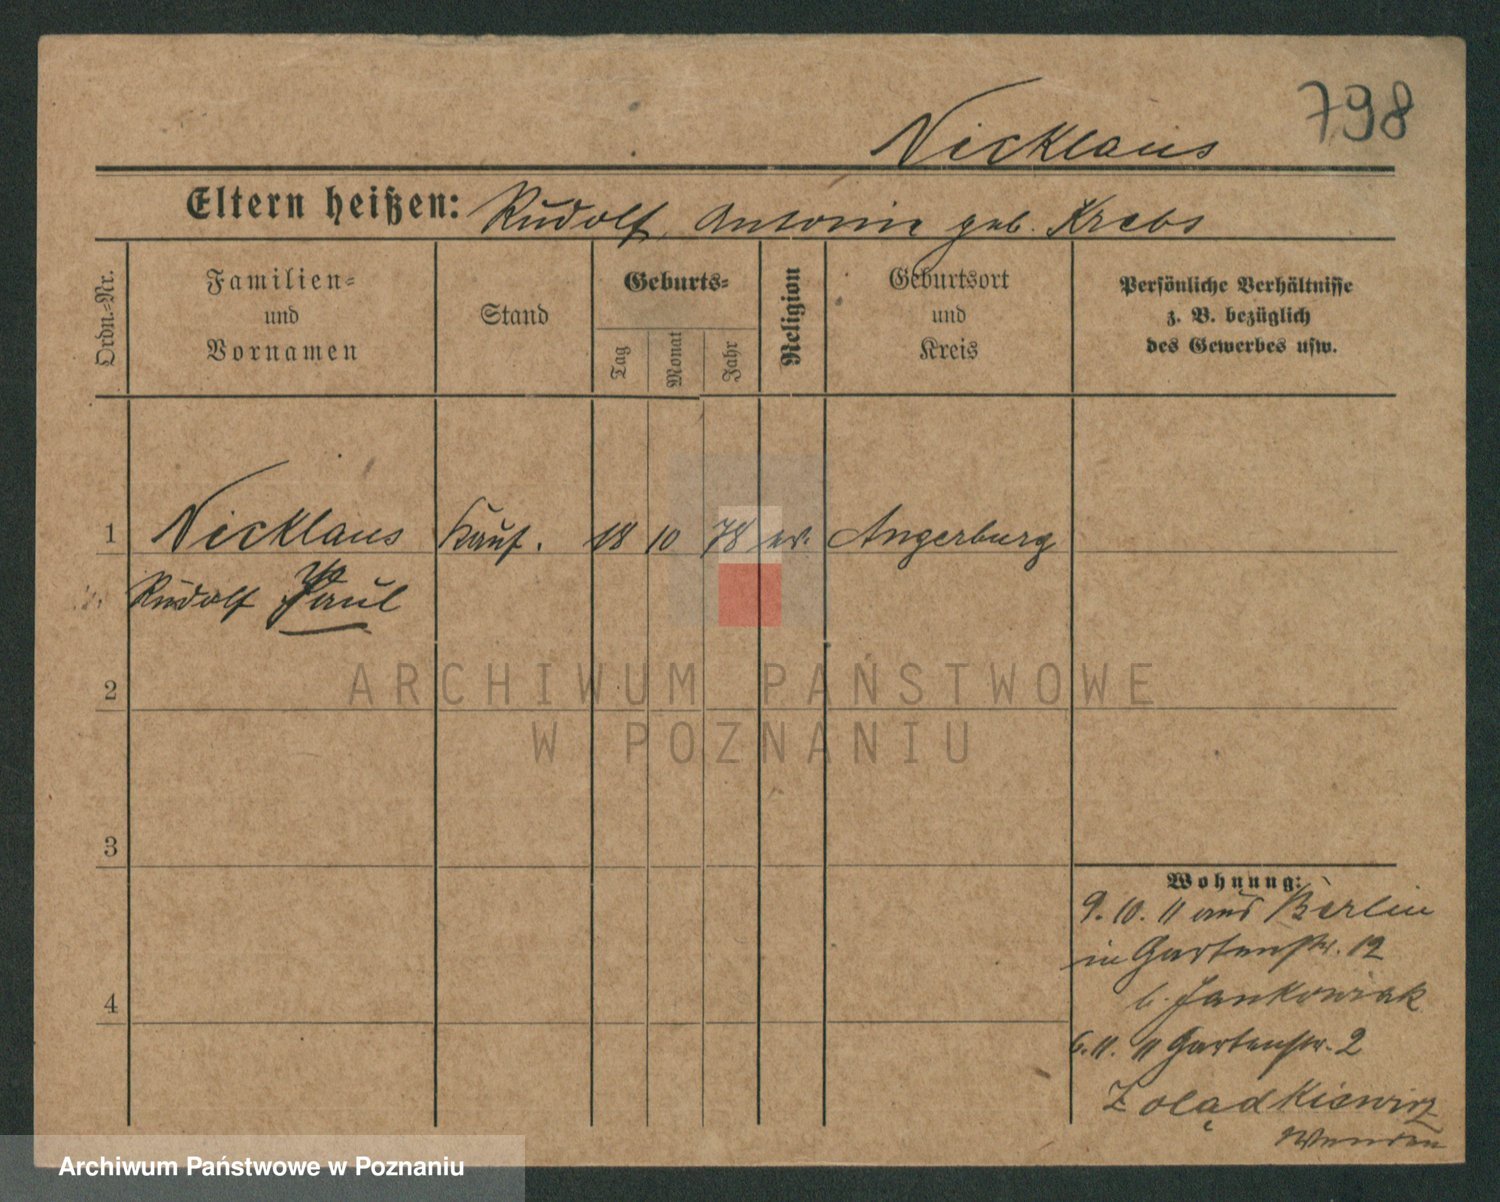 798
Nicklaus
Eltern heißen: Rudolf, Antonie geb. Krebs
Ordn.-Nr.
Familien=
und
Vornamen
Stand
Geburts=
Tag
Monat
Jahr
Religion
Geburtsort
und
Kreis
Persönliche Verhältnisse
z. B. bezüglich
des Gewerbes usw.
1 Nicklaus Kauf. 18 10 78 ev. Angerburg
Rudolf Paul
2
ARCHIWUM PAŃSTWOWE
W POZNANIU
3
4
Wohnung:
9. 10. 11 aus Berlin
in Gartenstr. 12
b. Jankowiak
6. 11. 11 Gartenstr. 2
Żolądkiewicz
Archiwum Państwowe w Poznaniu